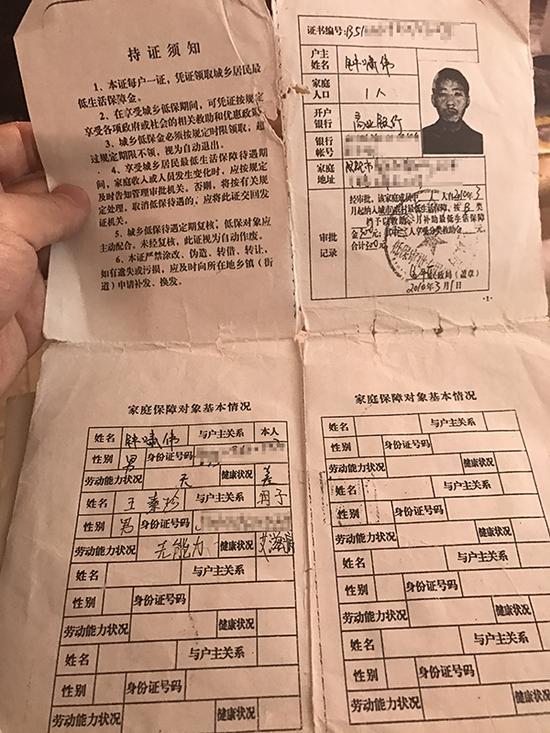 持证须知
1、本证每户一证，凭证领取城乡居民最
低生活保障金。
2、在享受城乡低保期间，可凭证按规定
享受各项政府或社会的相关救助和优惠政策
3、城乡低保金必须按规定时限领取，超
过规定期限不领，视为自动退出。
4、享受城乡居民最低生活保障待遇期
间，家庭收入或人员发生变化时，应按规定
及时告知管理审批机关。否则，将按有关规
定处理。取消低保待遇的，应将此证交回发
证机关。
5、城乡低保待遇定期复核，低保对象应
主动配合。未经复核，此证视为自动作废。
6、本证严禁涂改、伪造、转借、转让、
如有遗失或污损，应及时向所在地乡镇（街
道）申请补发、换发。
证书编号:
户主
姓名
家庭
人口
1人
开户
银行
商业银行
银行
帐号
家庭
地址
审批
记录
经审批，该家庭成员中
月起纳入城市
最低生活保障，按B类
月补助最低生活保障
合计
（盖章）
2010年3月1日
·1·
家庭保障对象基本情况
姓名 钟 伟 与户主关系 本人
性别 男 身份证号码
劳动能力状况 无 健康状况 差
姓名 王 与户主关系 母子
性别 男 身份证号码
劳动能力状况 无能力 健康状况
姓名 与户主关系
性别 身份证号码
劳动能力状况 健康状况
姓名 与户主关系
性别 身份证号码
劳动能力状况 健康状况
家庭保障对象基本情况
姓名 与户主关系
性别 身份证号码
劳动能力状况 健康状况
姓名 与户主关系
性别 身份证号码
劳动能力状况 健康状况
姓名 与户主关系
性别 身份证号码
劳动能力状况 健康状况
姓名 与户主关系
性别 身份证号码
劳动能力状况 健康状况